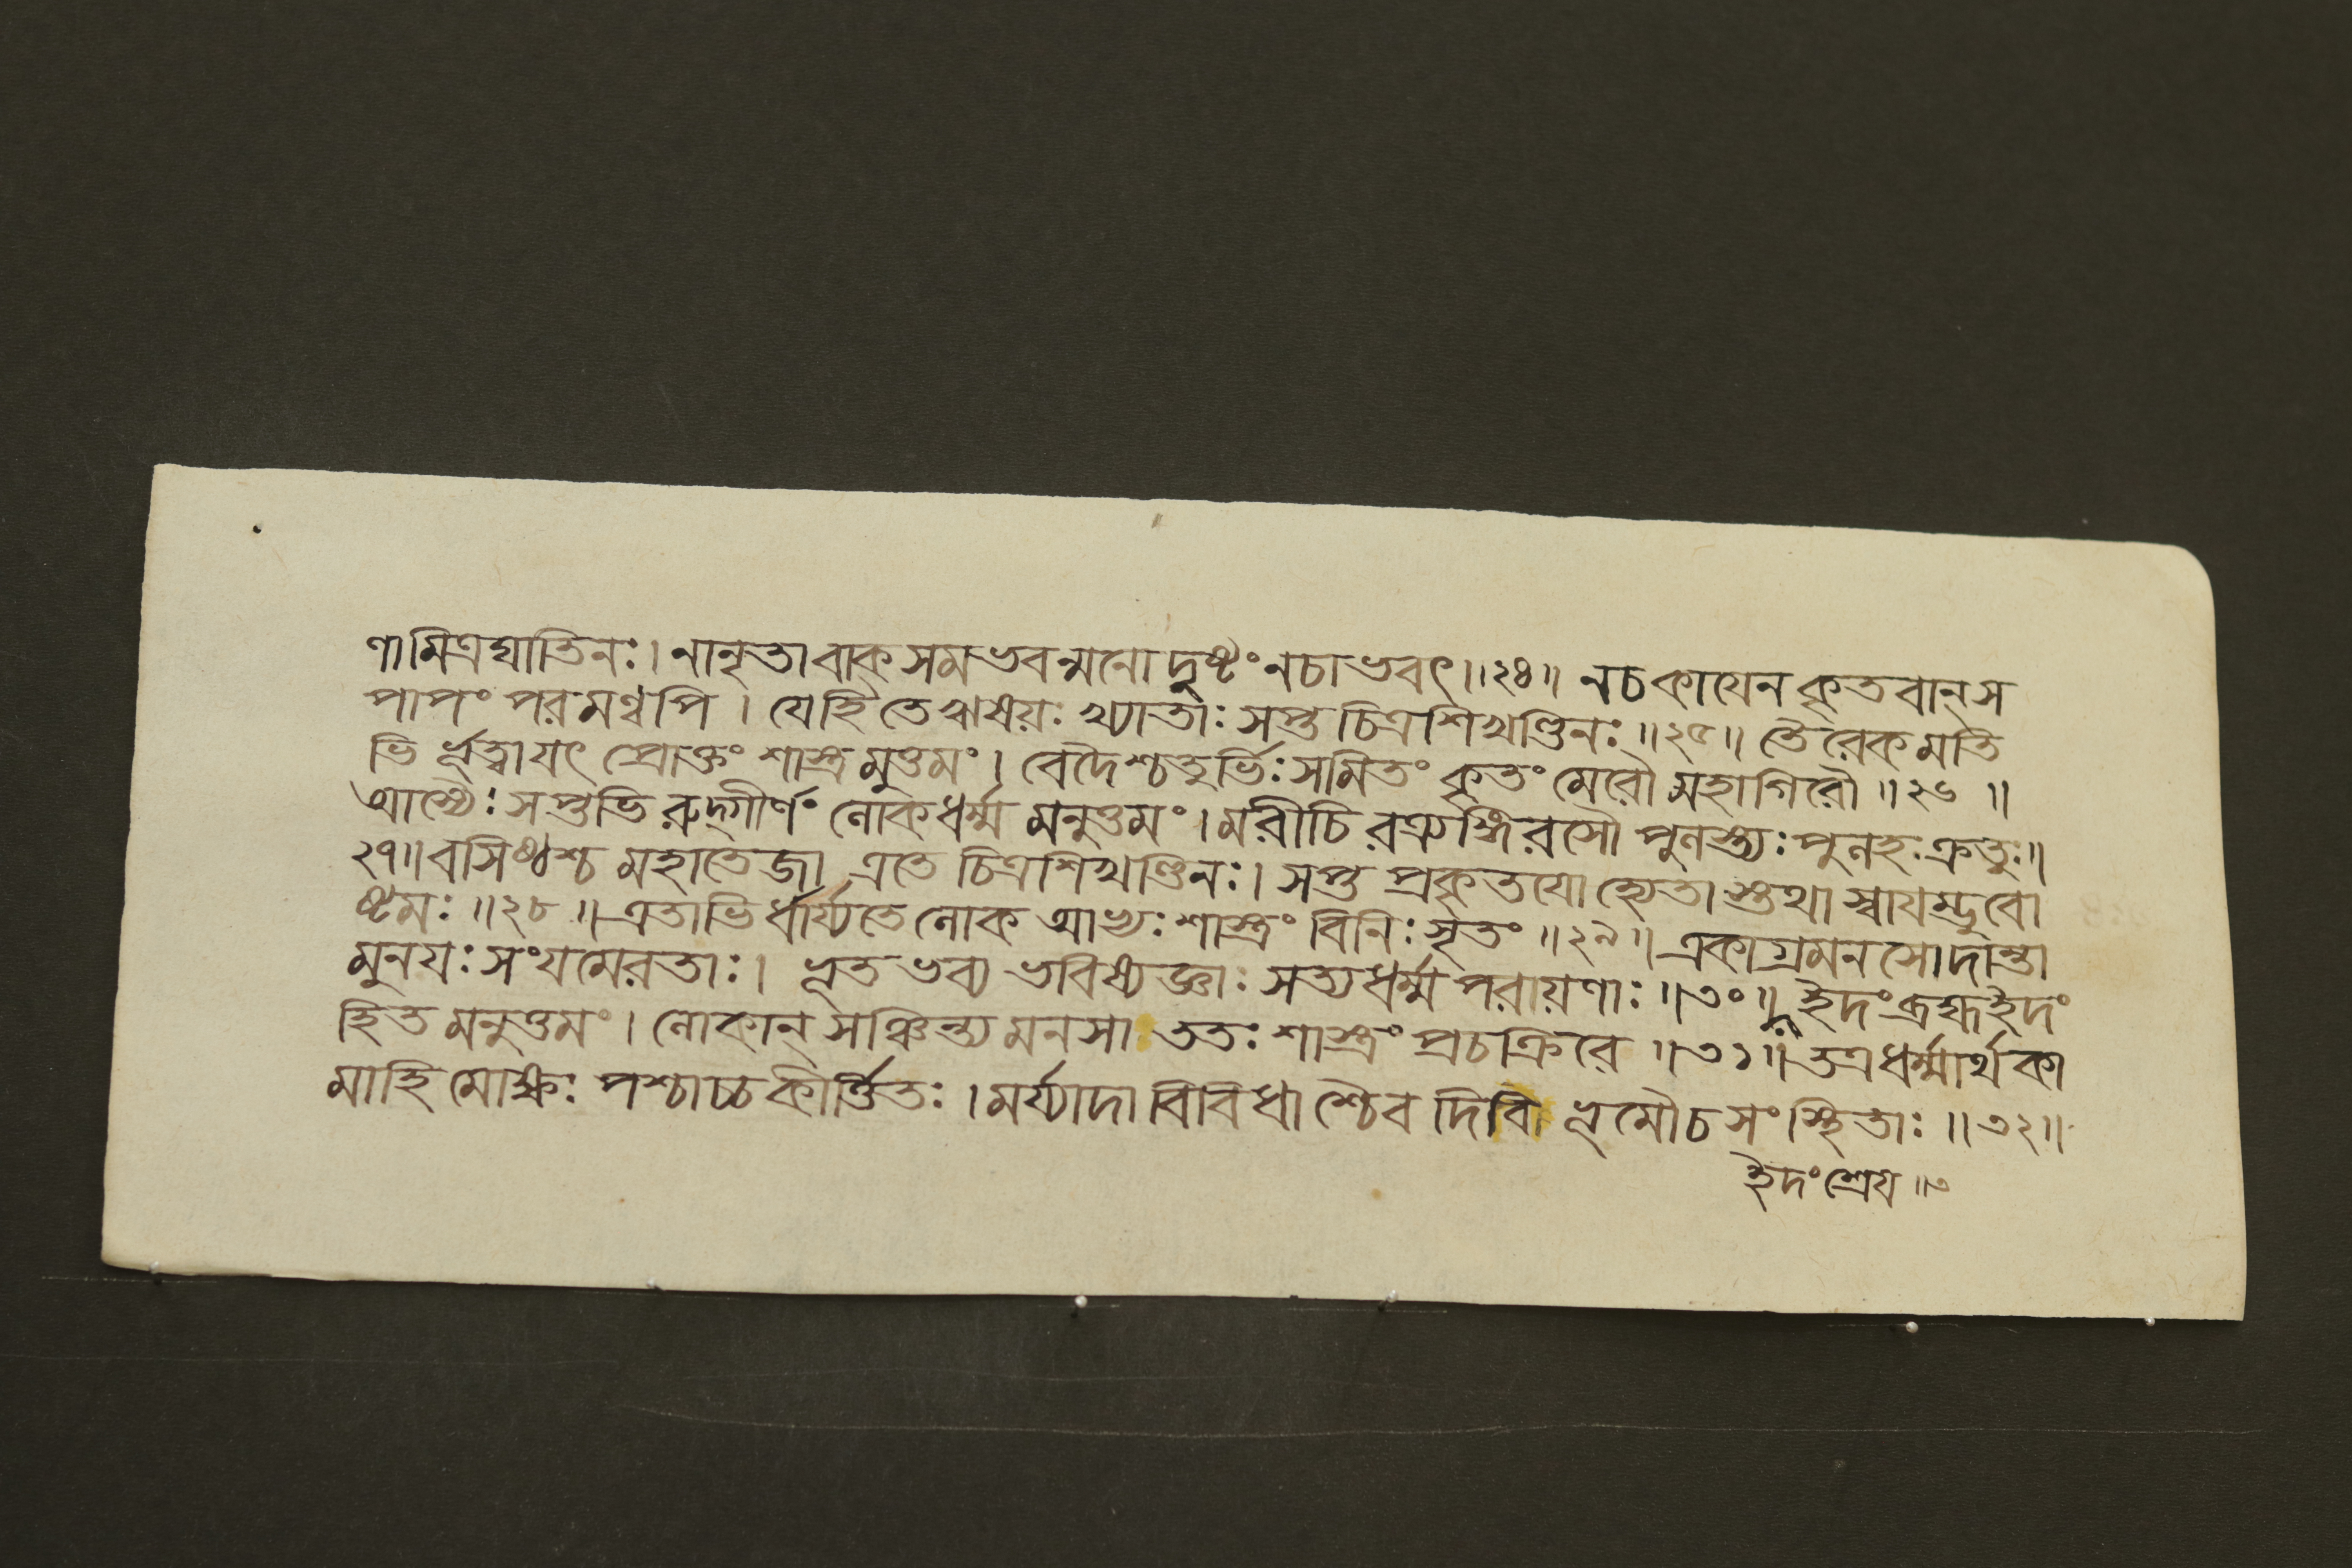 ণামিত্রঘাতিনঃ। নানৃতা বাক্ সমভবন্মনো দুষ্টং নচাভবৎ॥২৪॥ নচকায়েন কৃতবান্ স
পাপং পরমণ্বপি। যেহি তে ঋষয়ঃ খ্যাতাঃ সপ্ত চিত্রশিখণ্ডিনঃ॥২৫॥ তৈরেকমতি
ভি র্ভূত্বা যৎ প্রোক্তং শাস্ত্রমুত্তমং। বেদৈশ্চতুর্ভিঃ সমিতং কৃতং মেরৌ মহাগিরৌ॥২৬॥
আস্যৈঃ সপ্তভি রুদ্গীর্ণং লোকধর্ম্মমনুত্তমং। মরীচিরত্র্যঙ্গিরসৌ পুলস্ত্যঃ পুলহঃ ক্রতুঃ॥
২৭॥ বসিষ্ঠশ্চ মহাতেজা এতে চিত্রশিখণ্ডিনঃ। সপ্ত প্রকৃতয়ো হ্যেতাস্তথা স্বায়ম্ভুবো
ষ্টমঃ॥২৮॥ এতাভি র্ধার্য্যতে লোক আভ্যঃ শাস্ত্রং বিনিঃসৃতং॥২৯॥ একাগ্রমনসো দান্তা
মুনয়ঃ সংযমেরতাঃ। ভূতভব্যভবিষ্যজ্ঞাঃ সত্যধর্ম্মপরায়ণাঃ॥৩০॥ ইদং ব্রহ্মইদং
হিতমনুত্তমং। লোকান্ সঞ্চিন্ত্য মনসা ততঃ শাস্ত্রং প্রচক্রিরে॥৩১॥ তত্র ধর্ম্মার্থকা
মাহি মোক্ষঃ পশ্চাচ্চ কীর্ত্তিতঃ। মর্য্যাদা বিবিধাশ্চৈব দিবি ভূমৌচ সংস্থিতাঃ॥৩২॥
ইদং শ্রেয়॥৩